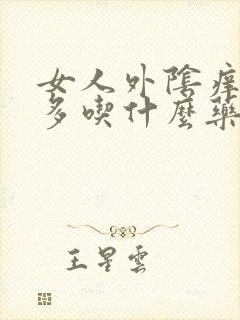 女人外陰癢
多喫什麼藥
王星雲